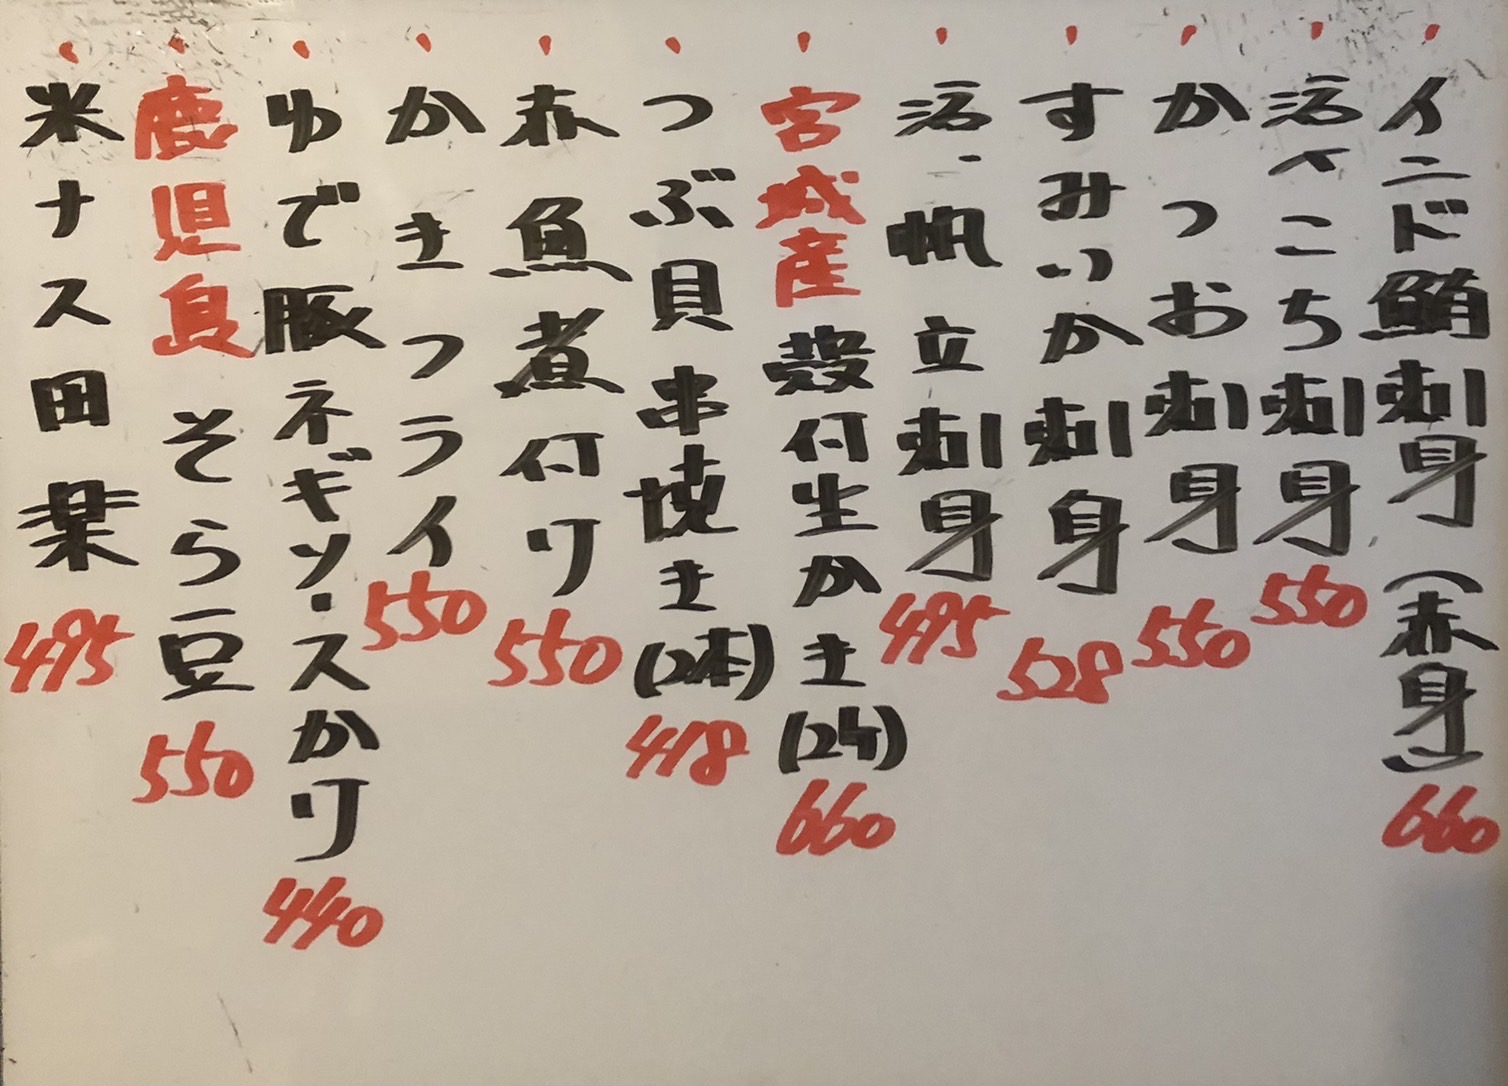 インド鮪刺身(赤身)660
活〆こち刺身550
かつお刺身550
すみいか刺身528
活帆立刺身495
宮城産殻付生かき(2ケ)660
つぶ貝串焼き(2本)418
赤魚煮付け550
かきフライ550
ゆで豚ネギソースかけ440
鹿児島そら豆550
米ナス田楽495